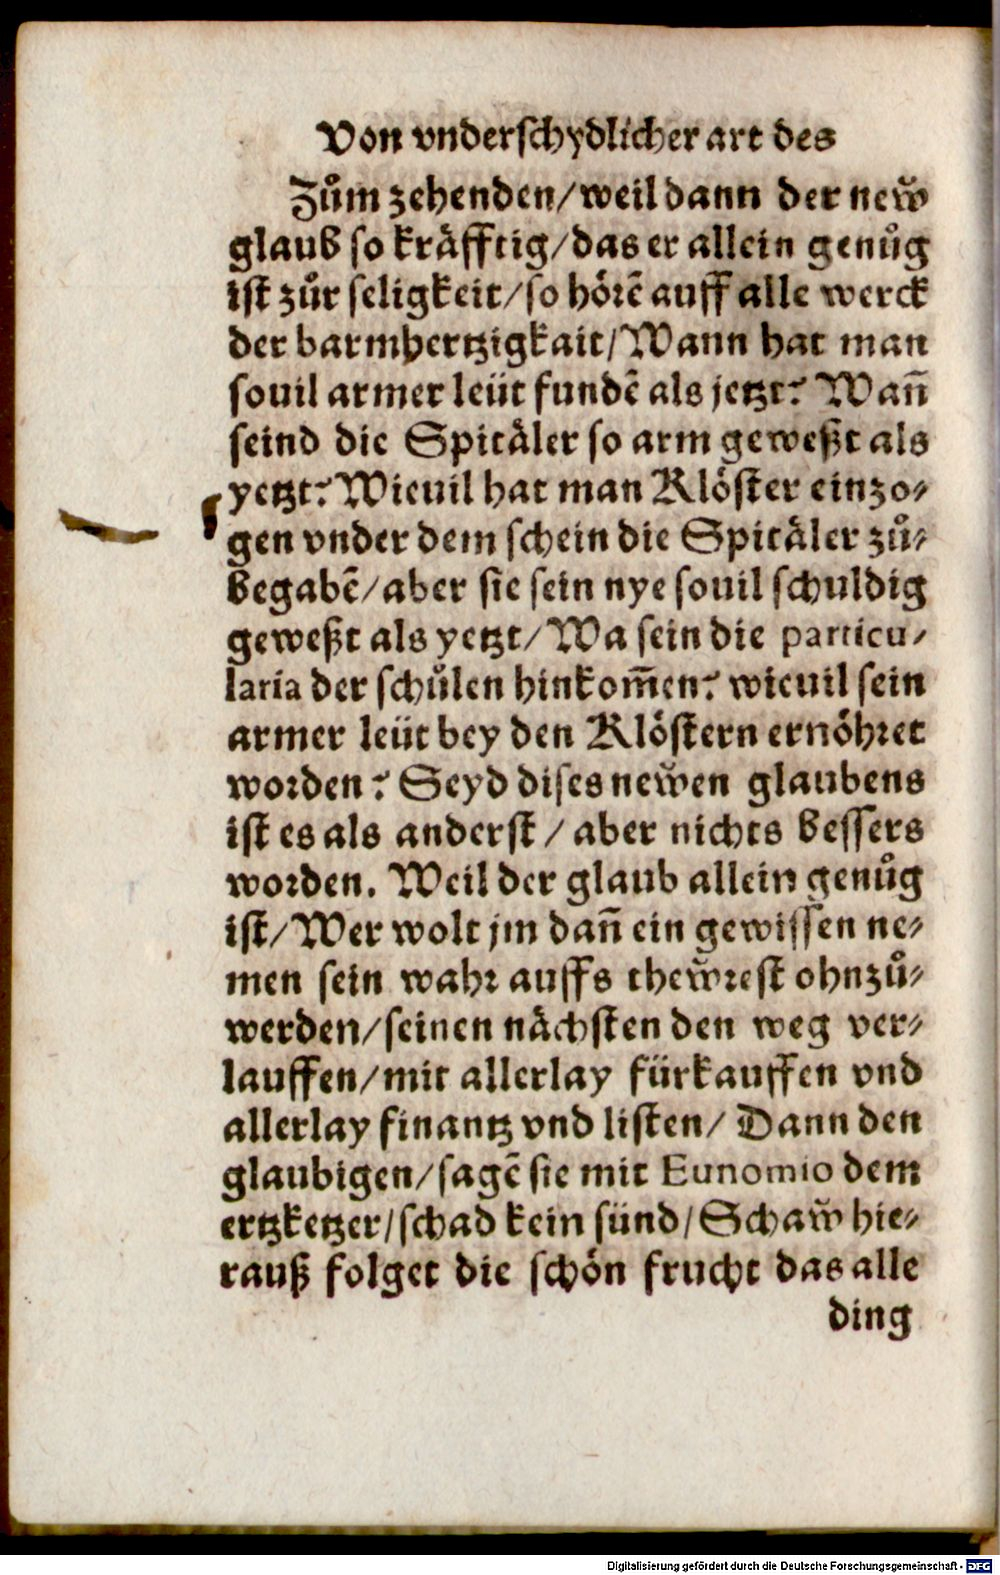 Von vnderschydlicher art des
Zům zehenden/weil dann der new̃
glaub so kräfftig/das er allein genůg
ist zůr seligkeit/so hörẽ auff alle werck
der barmhertzigkait/Wann hat man
souil armer leüt fundẽ als jetzt? Wañ
seind die Spitäler so arm geweßt als
yetzt? Wieuil hat man Klöster einzo⸗
gen vnder dem schein die Spitäler zů⸗
begabẽ/aber sie sein nye souil schuldig
geweßt als yetzt/Wa sein die particu⸗
laria der schůlen hinkom̃en? wieuil sein
armer leüt bey den Klöstern ernöhret
worden? Seyd dises new̃en glaubens
ist es als anderst/aber nichts bessers
worden. Weil der glaub allein genůg
ist/Wer wolt jm dañ ein gewissen ne⸗
men sein wahr auffs thew̃rest ohnzů⸗
werden/seinen nächsten den weg ver⸗
lauffen/mit allerlay fürkauffen vnd
allerlay finantz vnd listen/Dann den
glaubigen/sagẽ sie mit Eunomio dem
ertzketzer/schad kein sünd/Schaw̃ hie⸗
rauß folget die schön frucht das alle
ding
Digitalisierung gefördert durch die Deutsche Forschungsgemeinschaft - DFG